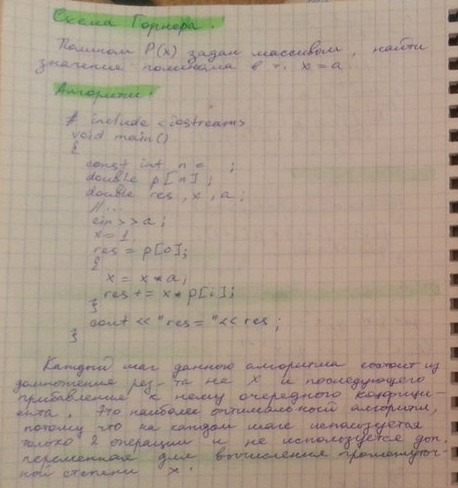 Схема Горнера.
Полином P(x) задан массивом, найти
значение полинома в т. x = a.
Алгоритм.
# include <iostream>
void main()
{
const int n =   ;
double p[n];
double res, x, a;
//...
cin>>a;
x=1
res = p[0];
{
x = x*a;
res += x* p[i];
}
cout << "res = "<< res;
}
Каждый шаг данного алгоритма состоит из
домножения рез-та на X и последующего
прибавления к нему очередного коэффици-
ента. Это наиболее оптимальный алгоритм,
потому что на каждом шаге используется
только 2 операции и не используется доп.
переменная для вычисления промежуточ-
ной степени x.